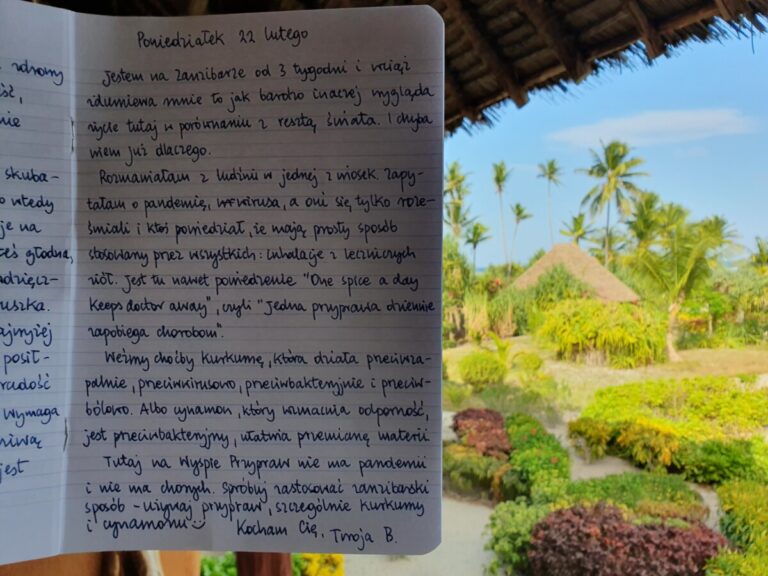 zdrowy
ść,
nie
skuba-
o wtedy
je na
teś głodna,
dzięcz-
uszka.
ajmniej
posił-
radość
wymaga
niwą
jest
Poniedziałek 22 lutego
Jestem na Zanzibarze od 3 tygodni i wciąż
zdumiewa mnie to jak bardzo inaczej wygląda
życie tutaj w porównaniu z resztą świata. I chyba
wiem już dlaczego.
Rozmawiałam z ludźmi w jednej z wiosek. Zapy-
tałam o pandemię, wirusa, a oni się tylko roze-
śmiali i ktoś powiedział, że mają prosty sposób
stosowany przez wszystkich: inhalacje z leczniczych
ziół. Jest tu nawet powiedzenie "One spice a day
keeps doctor away", czyli "Jedna przyprawa dziennie
zapobiega chorobom".
Weźmy choćby kurkumę, która działa przeciwza-
palnie, przeciwwirusowo, przeciwbakteryjnie i przeciw-
bólowo. Albo cynamon, który wzmacnia odporność,
jest przeciwbakteryjny, ułatwia przemianę materii.
Tutaj na Wyspie Przypraw nie ma pandemii
i nie ma chorych. Spróbuj zastosować zanzibarski
sposób - używaj przypraw, szczególnie kurkumy
i cynamonu
Kocham Cię, Twoja B.